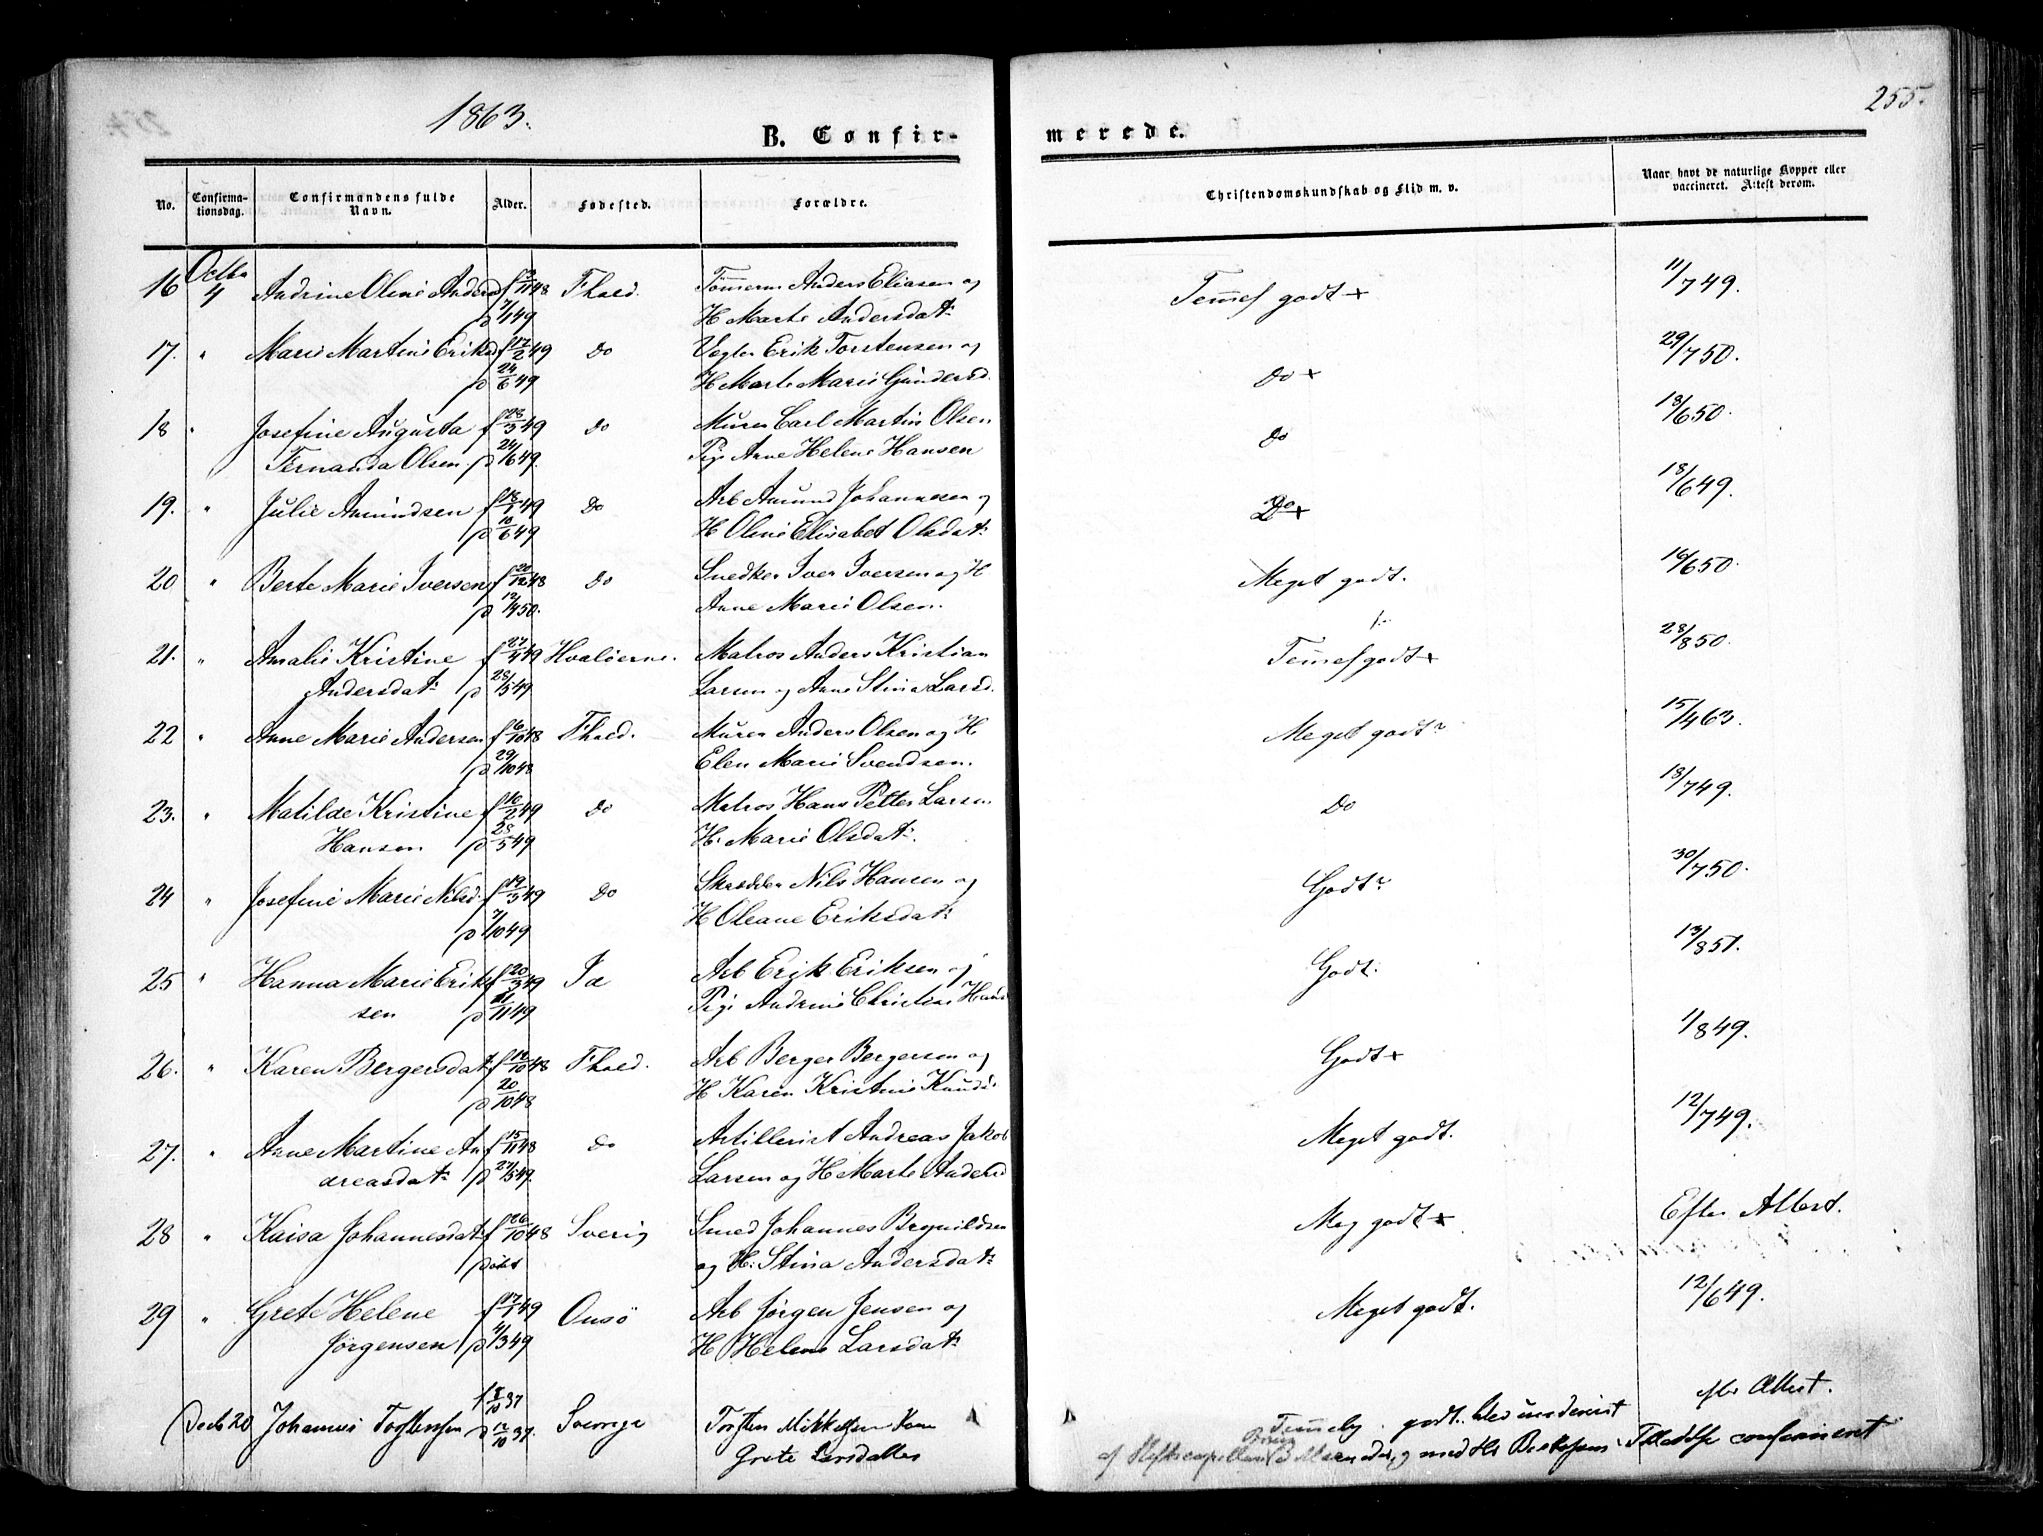 1863.
255.
B. Confir-
merede.
No.
Confirma-
tionsdag.
Confirmandens fulde
Navn.
Alder.
Fødested.
Forældre.
Christendomskundskab og Flid m. v.
Naar havt de naturlige Kopper eller
vaccineret. Attest derom.
16 Octbr 4 Andrine Oline Andersd f 3/11 48 Fhald. Tømmerm Anders Eliasen og Temel godt + 11/7 49.
d 7/1 49 H Marte Andersdat:
17. " Marie Martine Eriksd f 17/2 49 Do Vegter Erik Torstensen og Do + 29/7 50.
d 24/6 49 H Marte Marie Gundersd.
18 " Josefine Augusta f 28/3 49 Do Murer Carl Martin Olsen Do 18/6 50.
Fernanda Olsen d 24/6 49. Pige Anne Helene Hansen
19. " Julie Amundsen f 18/1 49 Do Arb Amund Johannesen og Do + 18/6 49.
d 10/6 49 H Oline Elisabet Olsdat:
20 " Berte Marie Iversen f 20/12 48 Do Snedker Iver Iversen og H Meget godt. 16/6 50.
d 12/4 50. Anne Marie Olsen.
21. " Amalie Kristine f 27/4 49 Hvaløerne. Matros Anders Kristian Temel godt + 28/8 50.
Andersdat: d 28/5 49 Larsen og Anne Stina Larsd.
22 " Anne Marie Andersen f 6/10 48 Fhald. Murer Anders Olsen og H Meget godt 15/4 63.
d 29/10 48 Elen Marie Svendsen.
23. " Matilde Kristine f 10/2 49 Do Matros Hans Petter Larsen Do 18/7 49.
Hansen d 28/5 49 H. Marie Olsdat:
24 " Josefine Marie Nilsd. f 19/3 49 Do Skrædder Nils Hansen og Godt 30/7 50.
d 7/10 49 H Oleane Eriksdat:
25 " Hanna Marie Erik f 20/3 49 Id Arb Erik Eriksen og Godt. 13/8 51.
sen d 11/11 49 Pige Andrine Christine Hans
26. " Karen Bergersdat f 14/10 48 Fhald. Arb Berger Bergersen og Godt + 1/8 49.
d 20/10 48 H Karen Kristine Knuds
27. " Anne Martine An f 15/11 48 Do Artillerist Andreas Jakob Meget godt. 12/7 49.
dreasdat: d 27/5 49. Larsen og H Marte Andersd
28 " Kaisa Johannesdat f 26/10 48 Sverig Smed Johannes Brynildsen Meg godt + Efter Attest.
og H: Stina Andersdat:
29 " Grete Helene f 17/1 49 Onsö Arb Jørgen Jensen og Meget godt. 12/6 49.
Jørgensen d 4/3 49 H Helene Larsdat:
Decb 20 Johannes Torstensen f 8/10 37 Sverrige Torsten Mikkelsen Kone godt. blev underviist efter Attest.
d 12/10 37. Grete Larsdatter af og med Hr Biskopens Tilladelse confirmeret